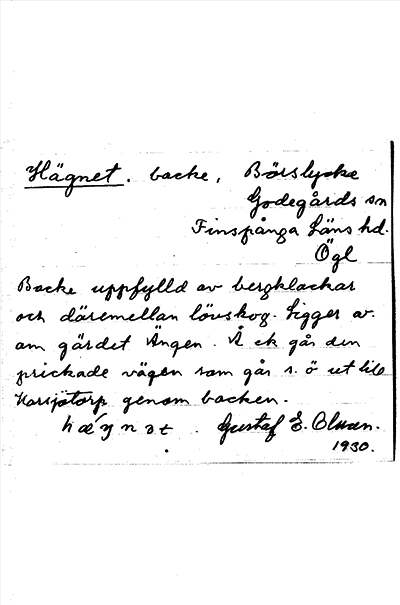 Hägnet. backe, Börslycke
Godegårds sn
Finspånga Läns hd.
Ögl
Backe uppfylld av bergklackar
och däremellan lövskog. Ligger av.
om gärdet Ängen. Å ek går den
prickade vägen som går s. ö ut till
genom backen.
Gustaf E.
1930.